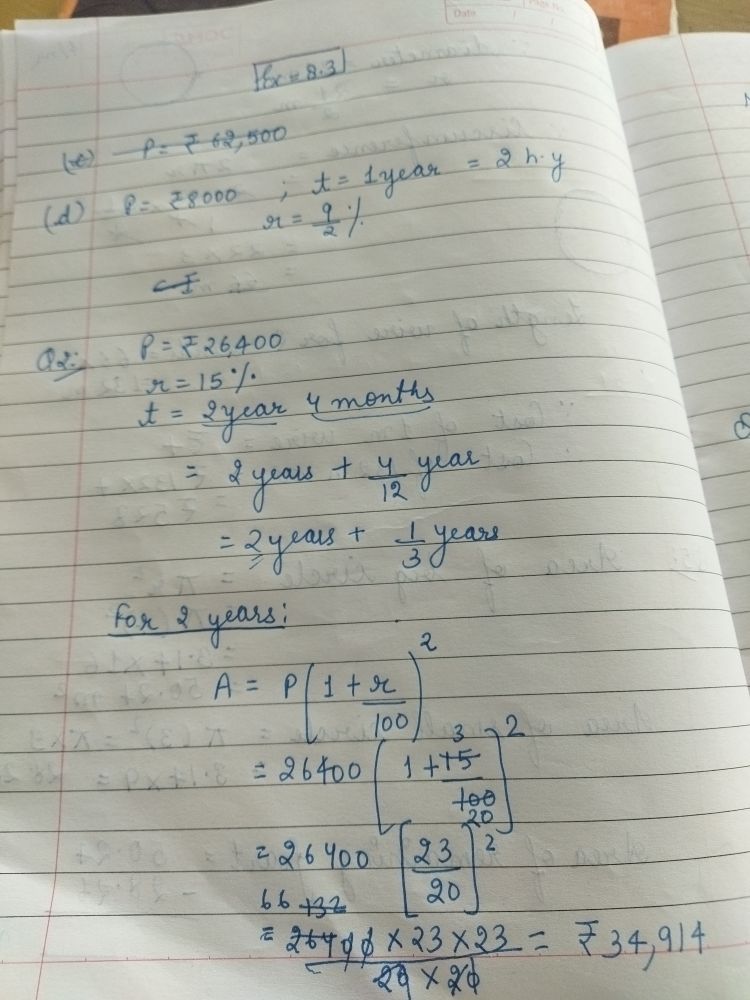 Date
Page No.
Ex = 8.3
(c) P = ₹ 62,500
(d) P = ₹8000 ; t = 1 year = 2 h.y
r = 9/2 %
CI
Q2: P = ₹26,400
r = 15%
t = 2 year 4 months
= 2 years + 4/12 year
= 2 years + 1/3 years
For 2 years:
A = P(1 + r/100)²
= 26400 [1 + 15/100]² 3 20
= 26400 [23/20]²
66 132
= 26400 × 23 × 23 / 20 × 20 = ₹34,914